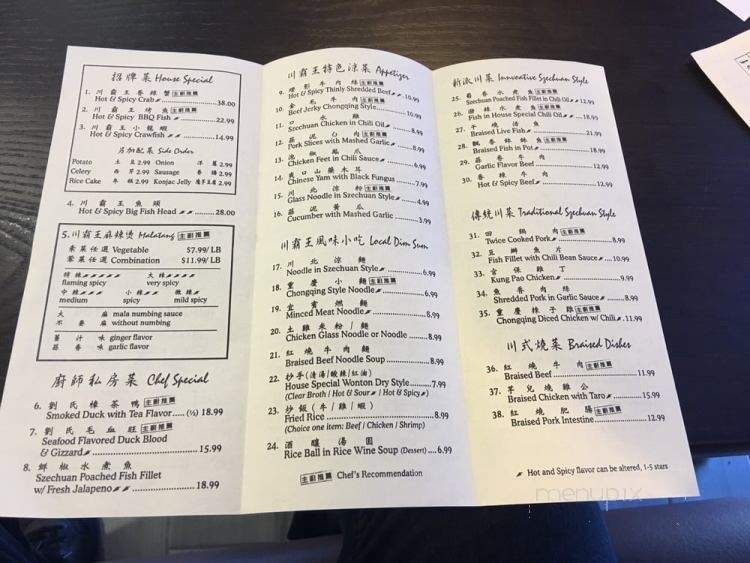 招牌菜 House Special
1. 川霸王香辣蟹 主廚推薦
Hot & Spicy Crab 38.00
2. 川霸王烤魚 主廚推薦
Hot & Spicy BBQ Fish 22.99
3. 川霸王小龍蝦
Hot & Spicy Crawfish 14.99
另加配菜 Side Order
Potato 土豆 2.99 Onion 洋蔥 2.99
Celery 西芹 2.99 Sausage 香腸 2.99
Rice Cake 年糕 2.99 Konjac Jelly 魔芋豆腐 2.99
4. 川霸王魚頭
Hot & Spicy Big Fish Head 28.00
5. 川霸王麻辣燙 Malatang 主廚推薦
素菜任選 Vegetable $7.99/LB
葷菜任選 Combination $11.99/LB
特辣 大辣
flaming spicy very spicy
中辣 小辣 微辣
medium spicy mild spicy
大麻 mala numbing sauce
不要麻 without numbing
薑汁味 ginger flavor
蒜香味 garlic flavor
廚師私房菜 Chef Special
6. 劉氏樟茶鴨 主廚推薦
Smoked Duck with Tea Flavor..... (½) 18.99
7. 劉氏毛血旺 主廚推薦
Seafood Flavored Duck Blood
& Gizzard 15.99
8. 鮮椒水煮魚
Szechuan Poached Fish Fillet
w/ Fresh Jalapeno 18.99
川霸王特色涼菜 Appetizer
9. 燈影牛肉絲 主廚推薦
Hot & Spicy Thinly Shredded Beef 10.99
10. 金毛牛肉
Beef Jerky Chongqing Style 10.99
11. 口水雞
Szechuan Chicken in Chili Oil 8.99
12. 蒜泥白肉
Pork Slices with Mashed Garlic 8.99
13. 泡椒鳳爪
Chicken Feet in Chili Sauce 6.99
14. 爽口山藥木耳
Chinese Yam with Black Fungus 7.99
15. 川北涼粉 主廚推薦
Glass Noodle in Szechuan Style 4.99
16. 蒜泥黃瓜
Cucumber with Mashed Garlic 3.99
川霸王風味小吃 Local Dim Sun
17. 川北涼麵
Noodle in Szechuan Style 6.99
18. 重慶小麵 主廚推薦
Chongqing Style Noodle 6.99
19. 宜賓燃麵
Minced Meat Noodle 8.99
20. 土雞米粉 / 麵
Chicken Glass Noodle or Noodle 8.99
21. 紅燒牛肉麵
Braised Beef Noodle Soup 8.99
22. 抄手(清湯/酸辣/紅油)
House Special Wonton Dry Style 7.99
(Clear Broth / Hot & Sour / Hot & Spicy)
23. 炒飯(牛/雞/蝦)
Fried Rice 8.99
(Choice one item: Beef / Chicken / Shrimp)
24. 酒釀湯圓
Rice Ball in Rice Wine Soup (Dessert) ....6.99
主廚推薦 Chef's Recommendation
新派川菜 Innveative Szechuan Style
25. 蜀香水煮魚 主廚推薦
Szechuan Poached Fish Fillet in Chili Oil 12.99
26. 水煮魚 主廚推薦
Fish in House Special Chili Oil 18.99
27. 干燒活魚
Braised Live Fish 21.99
28. 飄香魚 主廚推薦
Braised Fish in Pot 18.99
29. 蒜香牛肉
Garlic Flavor Beef 12.99
30. 香辣牛肉
Hot & Spicy Beef 12.99
傳統川菜 Traditional Szechuan Style
31. 回鍋肉
Twice Cooked Pork 8.99
32. 豆瓣魚片
Fish Fillet with Chili Bean Sauce 10.99
33. 宮保雞丁
Kung Pao Chicken 9.99
34. 魚香肉絲
Shredded Pork in Garlic Sauce 8.99
35. 重慶辣子雞 主廚推薦
Chongqing Diced Chicken w/ Chili 11.99
川式燒菜 Braised Dishes
36. 紅燒牛肉 主廚推薦
Braised Beef 11.99
37. 芋兒燒雞公
Braised Chicken with Taro 15.99
38. 紅燒肥腸 主廚推薦
Braised Pork Intestine 12.99
Hot and Spicy flavor can be altered, 1-5 stars
menupix